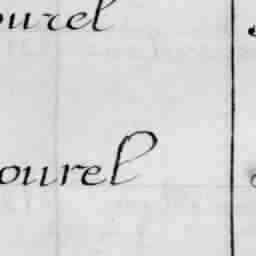 ourel
ourel